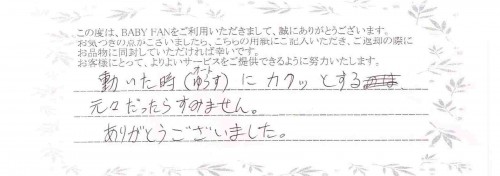 この度は、BABY FANをご利用いただきまして、誠にありがとうございます。
お気づきの点がございましたら、こちらの用紙にご記入いただき、ご返却の際に
お品物に同封していただければ幸いです。
お客様にとって、よりよいサービスをご提供できるように努力いたします。
動いた時(ゆらす)にカクッとする
元々だったらすみません。
ありがとうございました。